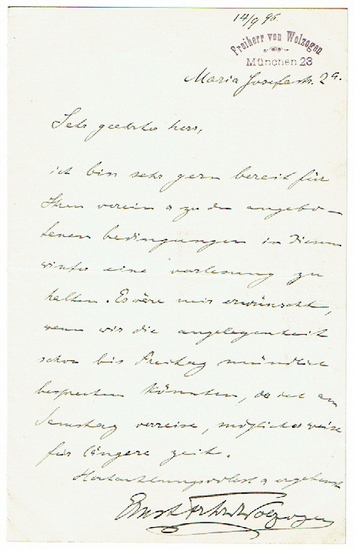 14/9 96
Freiherr von Wolzogen
München 23
Maria Josefastr. 2a.
Sehr geehrter herr,
ich bin sehr gern bereit für
Ihren verein zu den angebo-
tenen bedingungen in diesem
winter eine vorlesung zu
halten. Es wäre mir erwünscht,
wenn wir die angelegenheit
schon bis Freitag mündlich
besprechen könnten, da ich am
Samstag verreise, möglicherweise
für längere zeit.
Hochachtungsvollst ergebenst
Ernst Frhr v Wolzogen